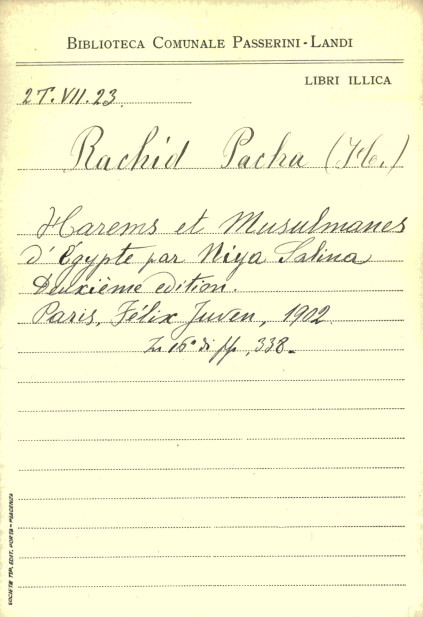 BIBLIOTECA COMUNALE PASSERINI-LANDI
LIBRI ILLICA
2T.VII.23
Rachid Pacha (He.)
Harems et Musulmanes
d'Égypte par Niya Salina
Deuxième edition.
Paris, Félix Juven, 1902
In 16° di pp, 338.
SOCIETÀ TIP. EDIT. PORTA - PIACENZA